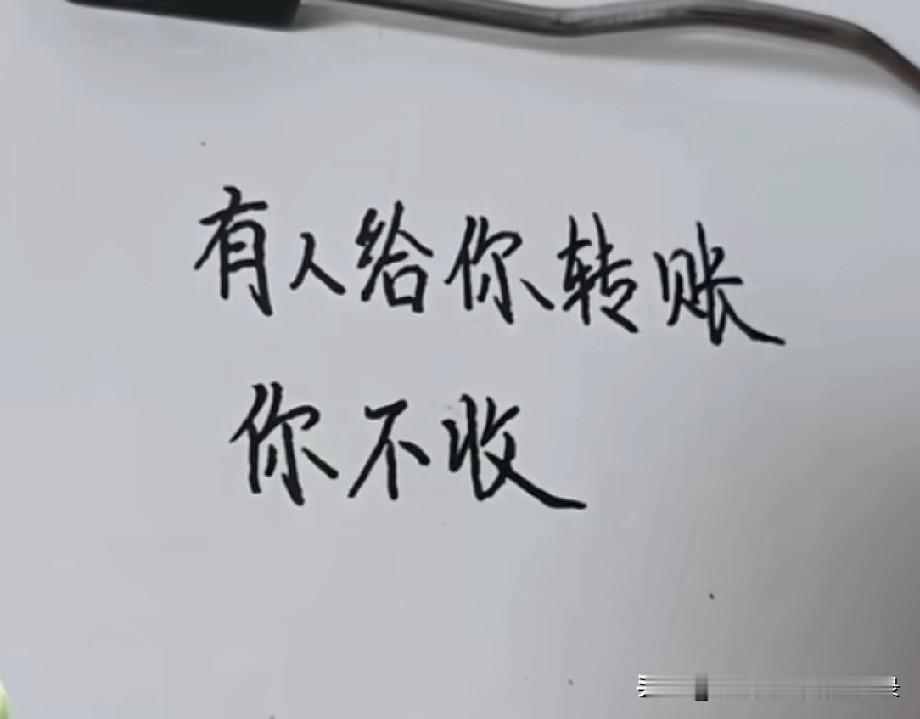 有人给你转账
你不收